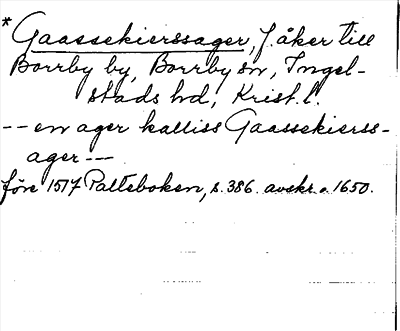 * Gaassekierssager, f. åker till
Borrby by, Borrby sn, Ingel-
stads hd, Krist. l.
-- en ager kalliss Gaassekierss-
ager --
före 1517 Palteboken, s. 386. avskr. o. 1650.